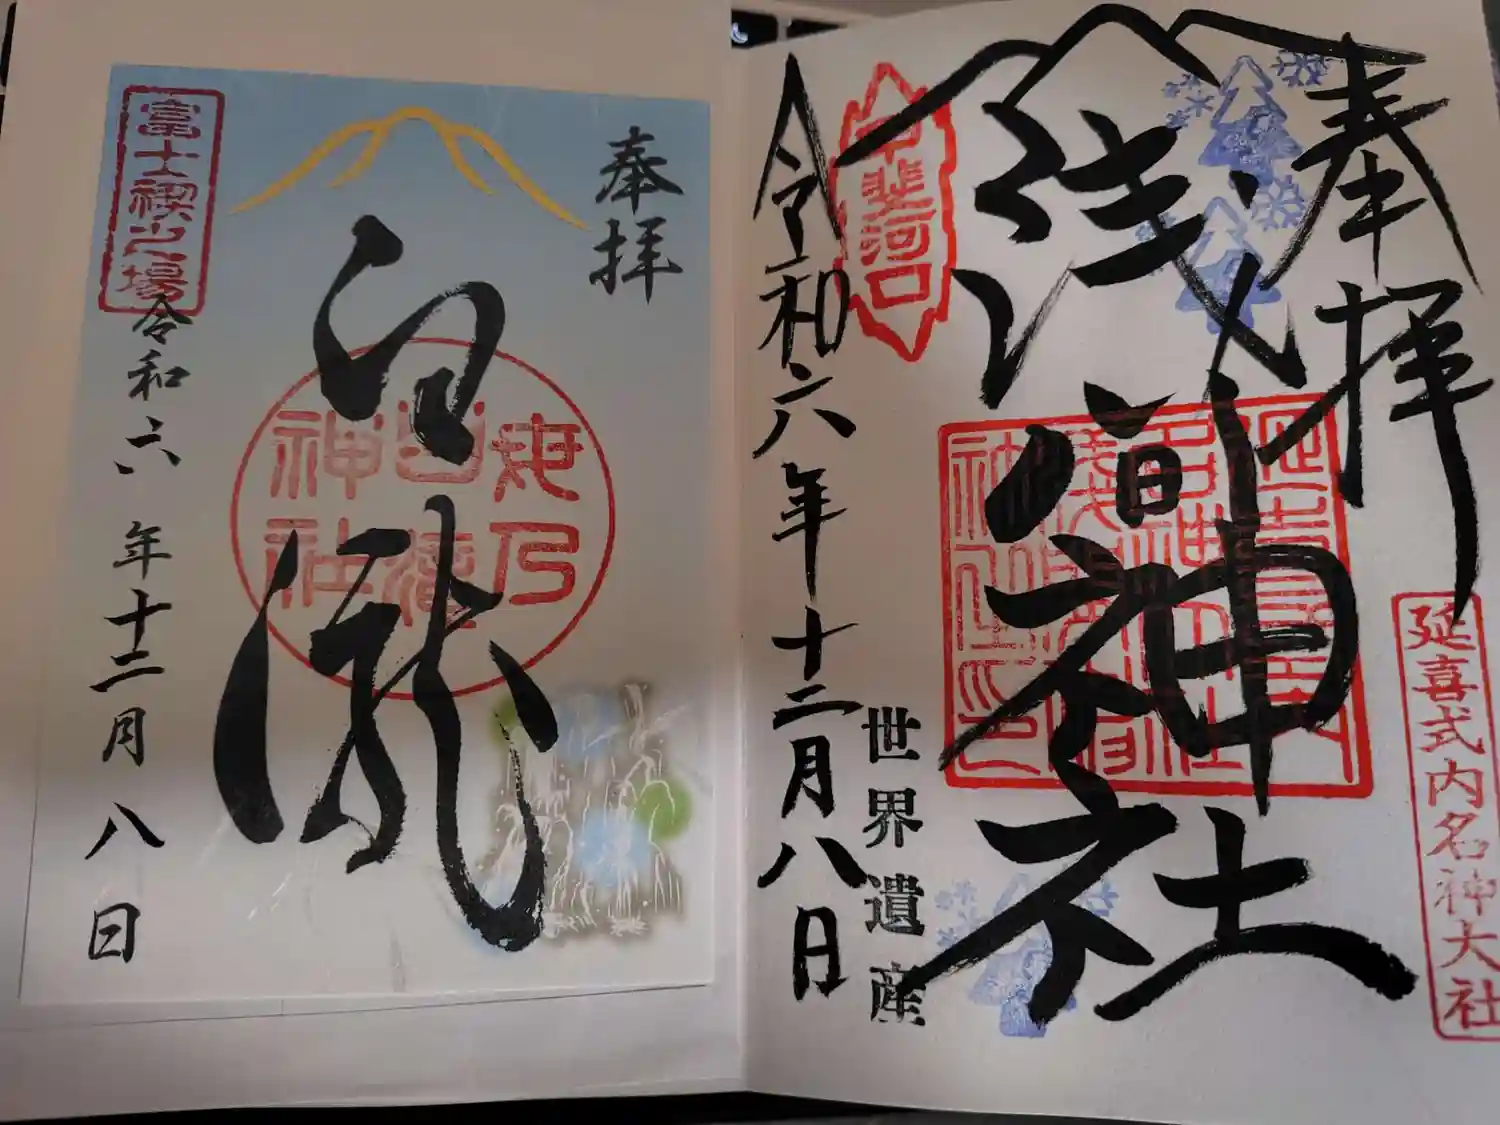 奉拝
延喜式内名神大社
浅間神社
甲斐河口
世界遺産
令和六年十二月八日
奉拝
白瀧
母乃
白滝
神社
富士禊之場
令和六年十二月八日